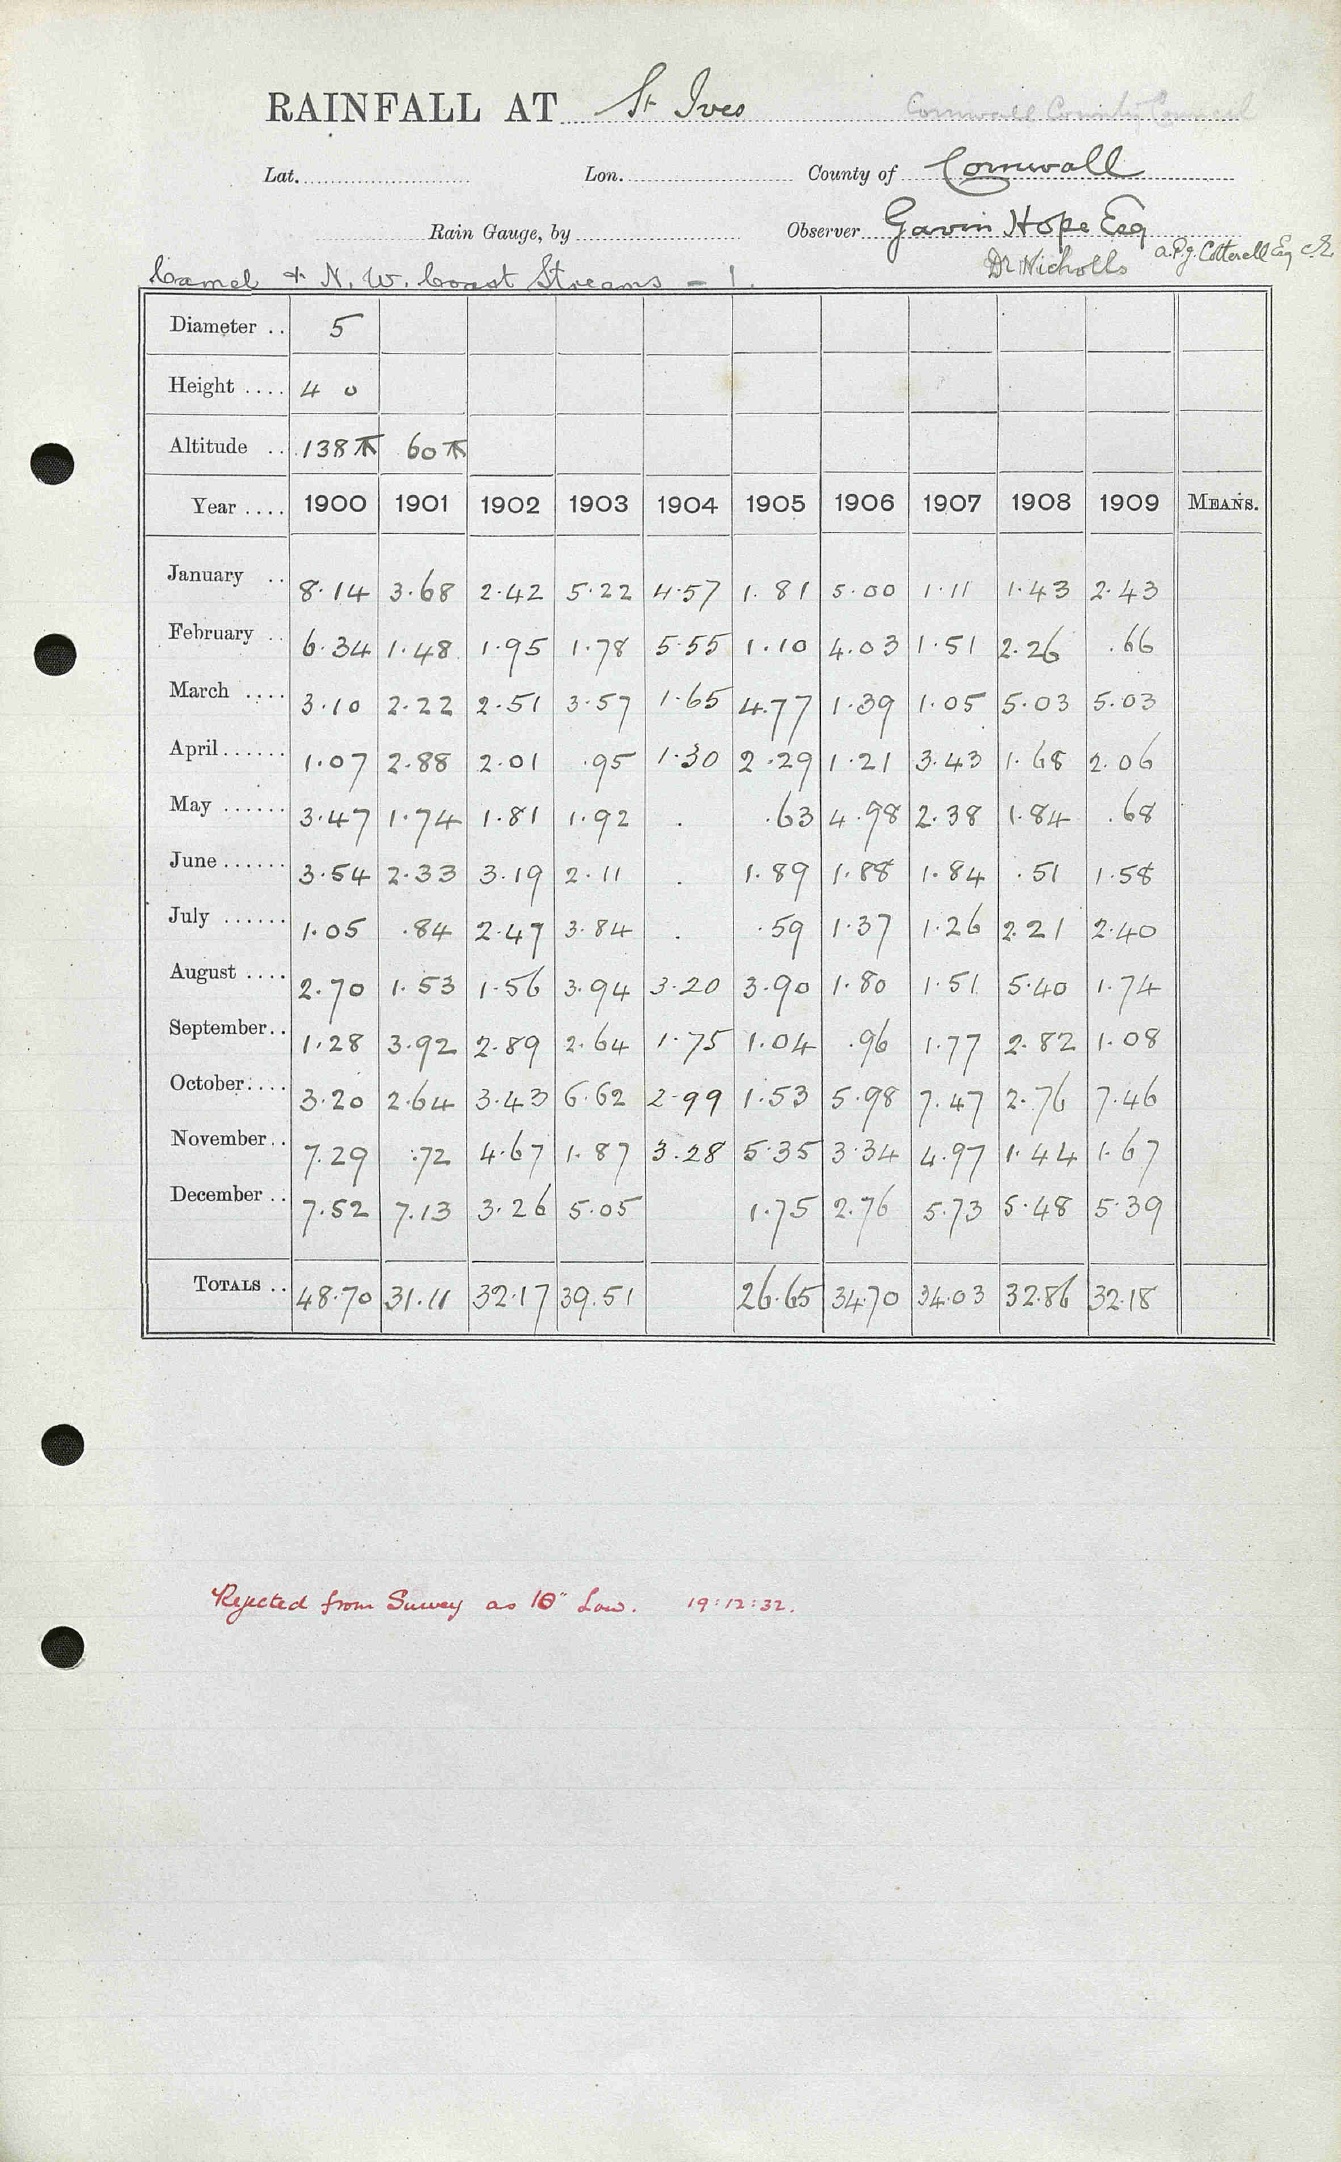 RAINFALL AT St Ives Cornwall County Council
Lat. Lon. County of Cornwall
Rain Gauge, by Observer Gavin Hope Esq
Dr Nicholls A.P.J. Cotterell Esq C.E.
Camel & N. W. Coast Streams - 1.
Diameter .. 5
Height .... 4 0
Altitude .. 138 ft 60 ft
Year .... 1900 1901 1902 1903 1904 1905 1906 1907 1908 1909 MEANS.
January .. 8.14 3.68 2.42 5.22 4.57 1.81 5.00 1.11 1.43 2.43
February .. 6.34 1.48 1.95 1.78 5.55 1.10 4.03 1.51 2.26 .66
March .... 3.10 2.22 2.51 3.57 1.65 4.77 1.39 1.05 5.03 5.03
April...... 1.07 2.88 2.01 .95 1.30 2.29 1.21 3.43 1.68 2.06
May ...... 3.47 1.74 1.81 1.92 . .63 4.98 2.38 1.84 .68
June ...... 3.54 2.33 3.19 2.11 . 1.89 1.88 1.84 .51 1.58
July ...... 1.05 .84 2.47 3.84 . .59 1.37 1.26 2.21 2.40
August .... 2.70 1.53 1.56 3.94 3.20 3.90 1.80 1.51 5.40 1.74
September.. 1.28 3.92 2.89 2.64 1.75 1.04 .96 1.77 2.82 1.08
October.... 3.20 2.64 3.43 6.62 2.99 1.53 5.98 7.47 2.76 7.46
November.. 7.29 .72 4.67 1.87 3.28 5.35 3.34 4.97 1.44 1.67
December .. 7.52 7.13 3.26 5.05 1.75 2.76 5.73 5.48 5.39
TOTALS .. 48.70 31.11 32.17 39.51 26.65 34.70 34.03 32.86 32.18
Rejected from Survey as 10" Low. 19:12:32.